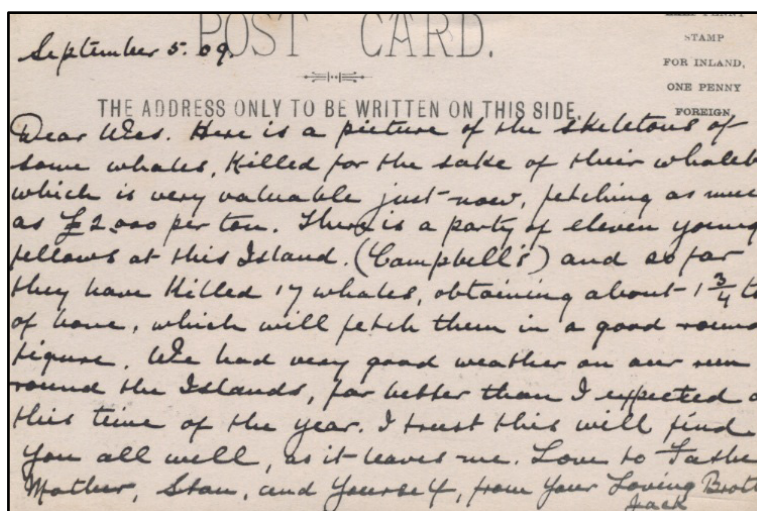 POST CARD.
STAMP
FOR INLAND,
ONE PENNY
FOREIGN.
September 5. 09.
THE ADDRESS ONLY TO BE WRITTEN ON THIS SIDE.
Dear Wes. Here is a picture of the skeletons of
some whales, killed for the sake of their whaleb
which is very valuable just now, fetching as muc
as £2.000 per ton. There is a party of eleven young
fellows at this Island. (Campbell's) and so far
they have killed 17 whales, obtaining about 1 3/4 to
of bone, which will fetch them in a good round
figure. We had very good weather on our run
round the Islands, far better than I expected a
this time of the year. I trust this will find
you all well, as it leaves me. Love to Fathe
Mother, Stan, and Yourself, from Your Loving Brot
Jack